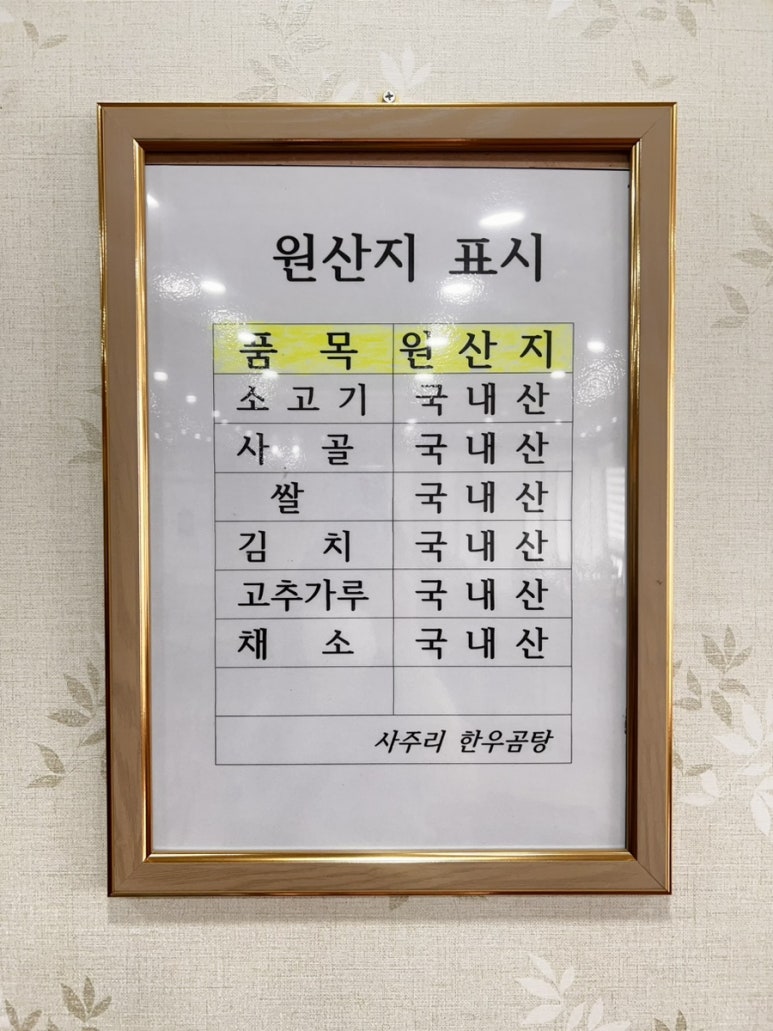 원산지 표시
품 목 원 산 지
소 고 기 국 내 산
사 골 국 내 산
쌀 국 내 산
김 치 국 내 산
고추가루 국 내 산
채 소 국 내 산
사주리 한우곰탕